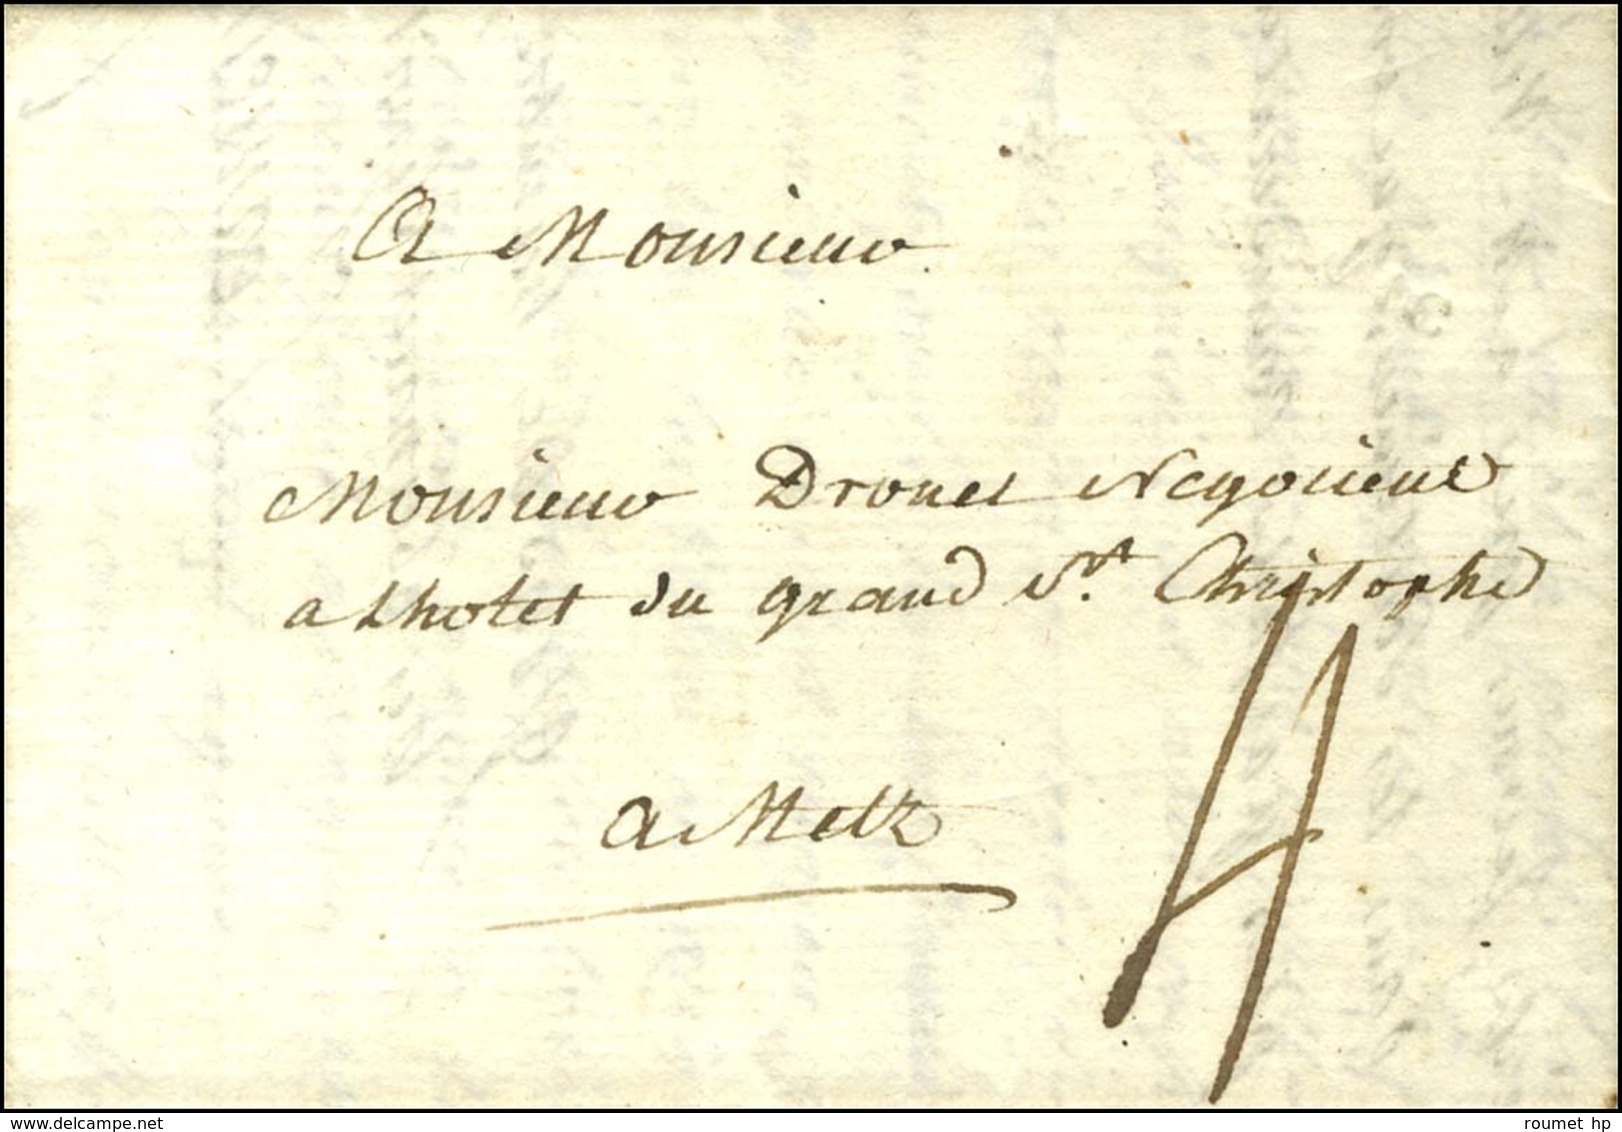 A Monsieur
Monsieur Drouet Negocient
a Lhotel du grand St. Christophe
a Metz
4
delcampe.net
roumet hp